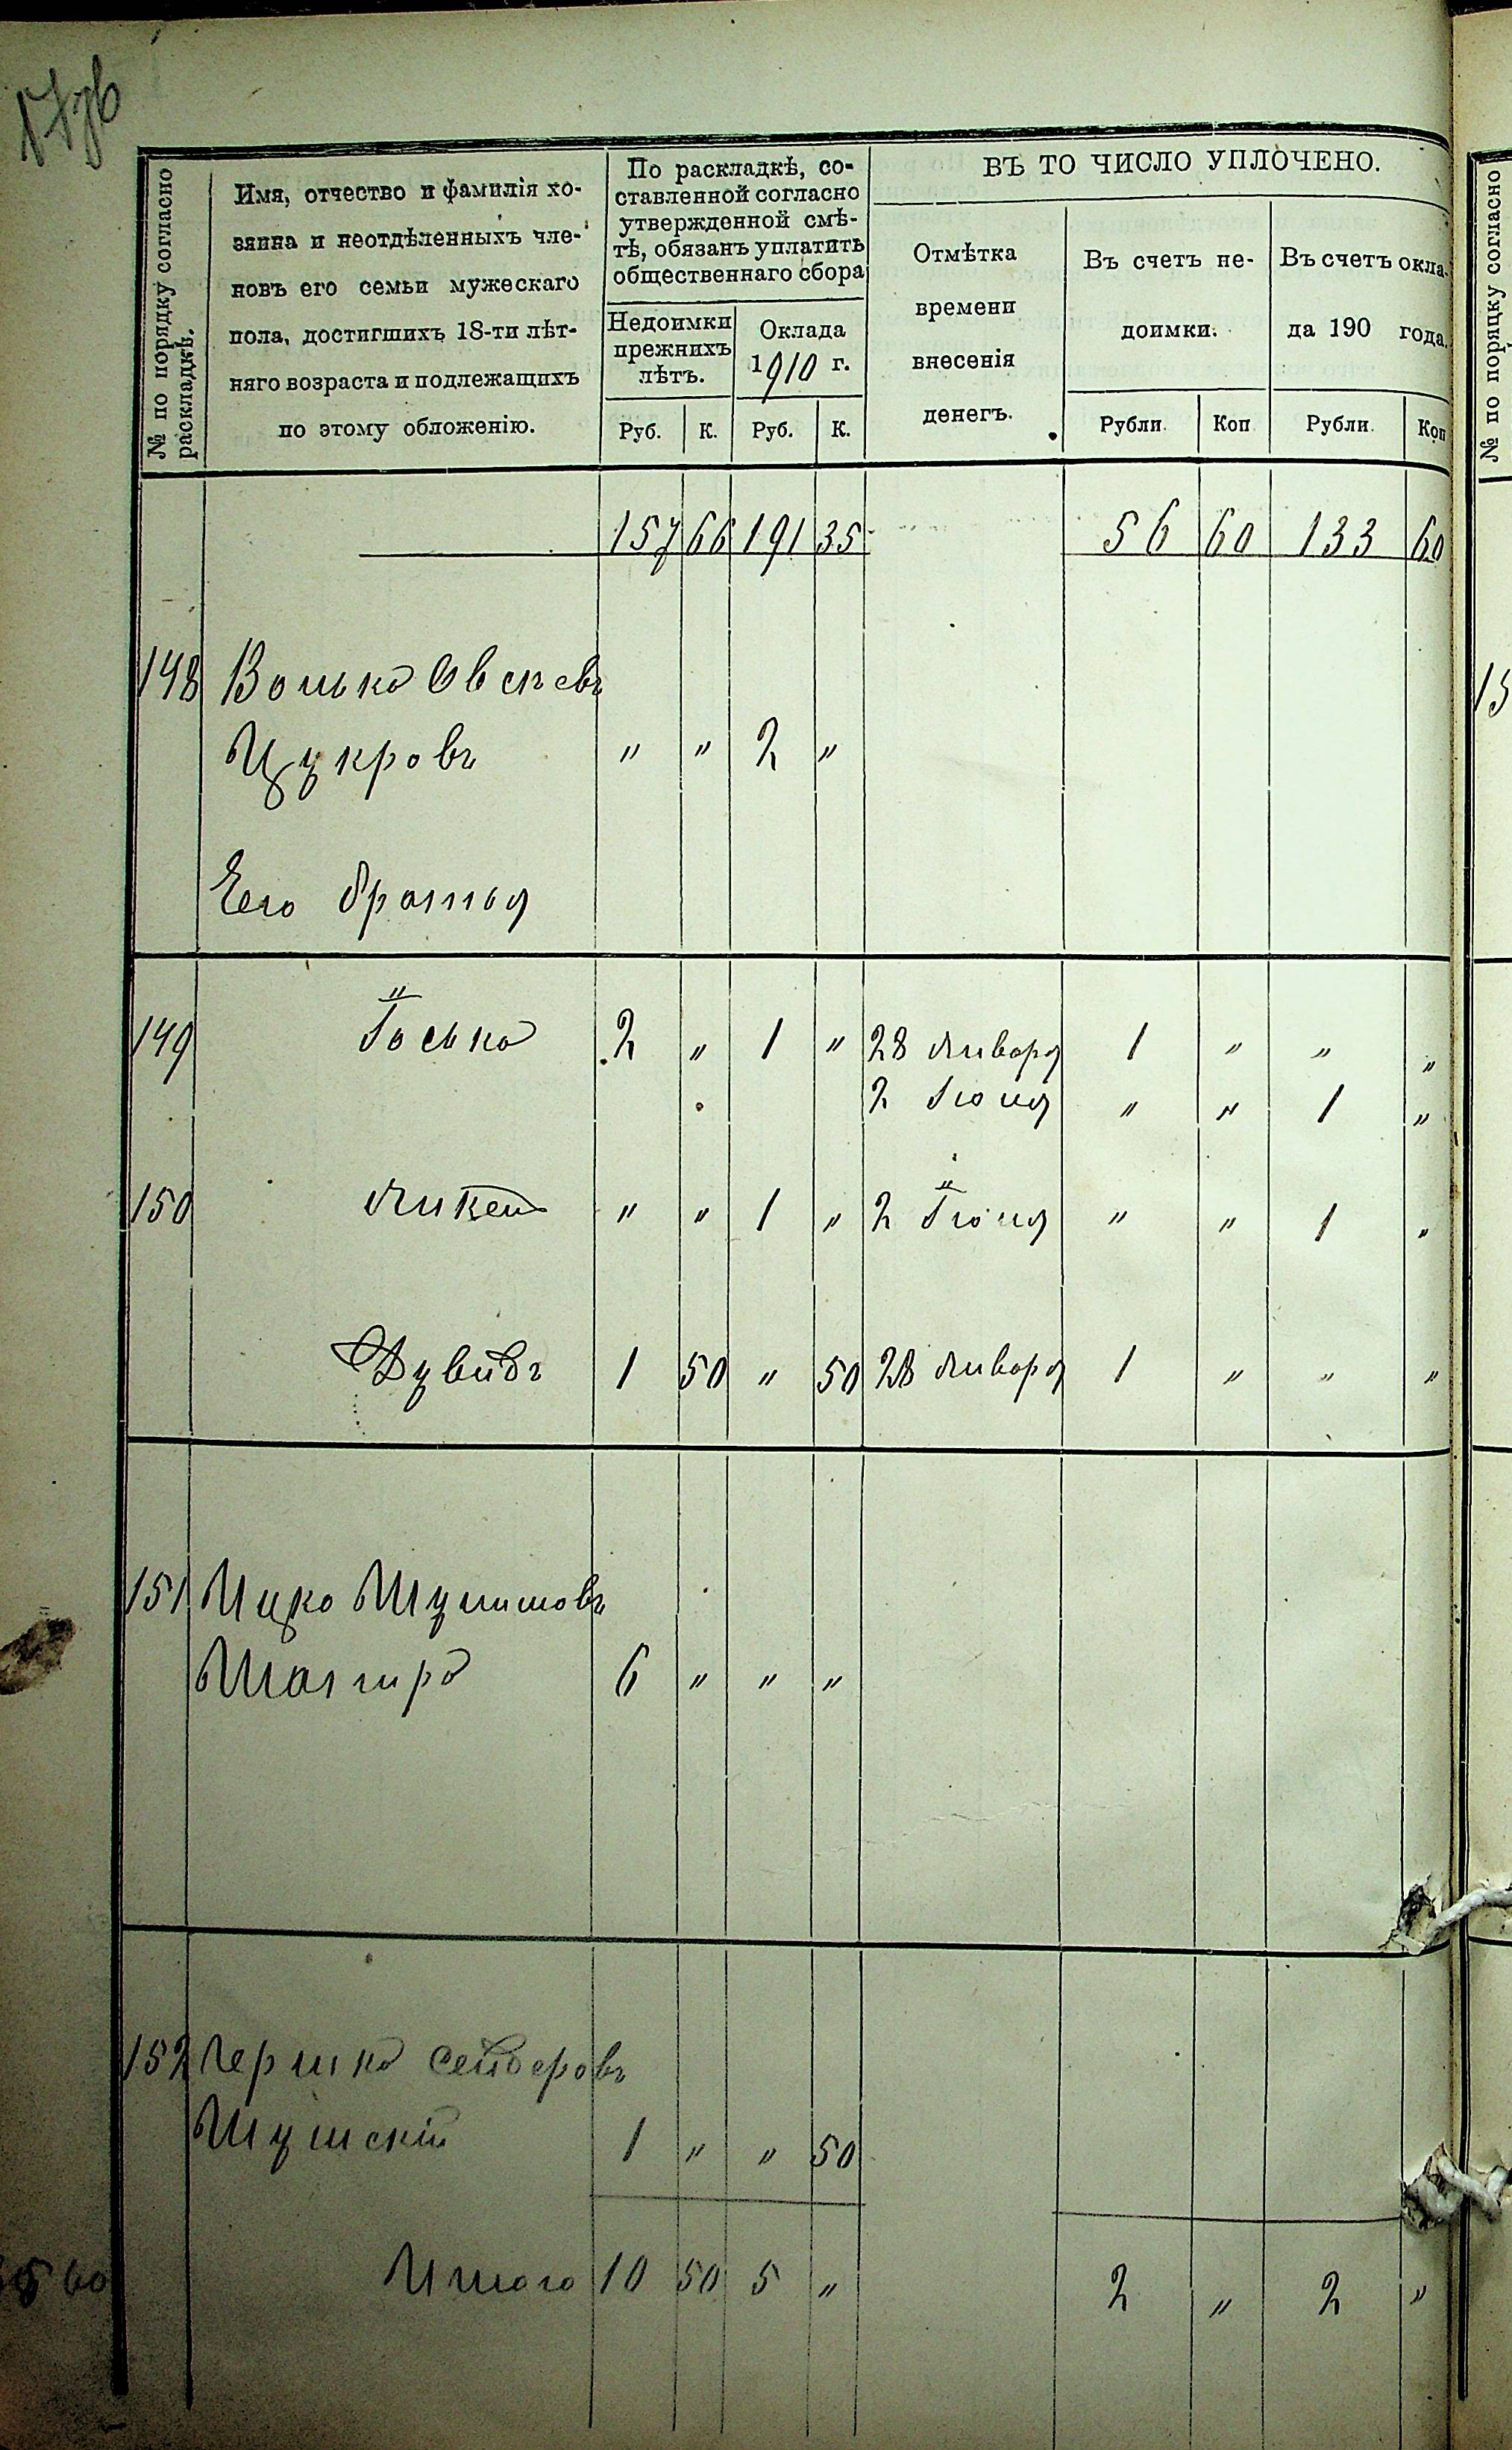 17об
№ по порядку согласно
раскладкѣ.
Имя, отчество и фамилія хо-
зяина и неотдѣленныхъ чле-
новъ его семьи мужескаго
пола, достигшихъ 18-ти лѣт-
няго возраста и подлежащихъ
по этому обложенію.
По раскладкѣ, со-
ставленной согласно
утвержденной смѣ-
тѣ, обязанъ уплатить
общественнаго сбора
Недоимки
прежнихъ
лѣтъ.
Оклада
1910 г.
Руб. К. Руб. К.
ВЪ ТО ЧИСЛО УПЛОЧЕНО.
Отмѣтка
времени
внесенія
денегъ.
Въ счетъ не-
доимки.
Въ счетъ окла-
да 190 года.
Рубли. Коп Рубли. Коп
157 66 191 35 56 60 133 60
148 Волько Овсеевъ
Цукровъ " " 2 "
Его братья
149 Іосько 2 " 1 " 28 Января 1 " " "
2 Іюня " " 1 "
150 Янкель " " 1 " 2 Іюня " " 1 "
Дувидъ 1 50 " 50 28 Января 1 " " "
151 Ицко Шулимовъ
Шапиро 6 " " "
152 Гершко Сендеровъ
Шумскій 1 " " 50
Итого 10 50 5 " 2 " 2 "
№ по порядку согласно
15